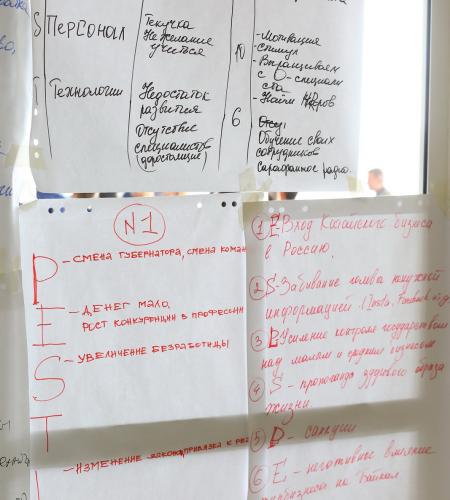 S Персонал
Текучка
Нежелание
учиться
10
- Мотивация
- Стимул
- Выращиваем
с 0 - специали
ста
- Найти HR ров
Технологии
Недостаток
развития
Отсутствие
специалистов
(дорогостоящие)
6
Обучение своих
сотрудников
Сарафанное радио.
N1
P - СМЕНА ГУБЕРНАТОРА, СМЕНА КОМАН
E - ДЕНЕГ МАЛО,
РОСТ КОНКУРЕНЦИИ В ПРОФЕССИИ
S - УВЕЛИЧЕНИЕ БЕЗРАБОТИЦЫ
T
- ИЗМЕНЕНИЕ
1 E - Вход Китайского бизнеса
в Россию.
2 S - Забивание головы ненужной
информацией. Insta, Facebook
3 Усиление контроля государством
над малым и средним бизнесом
4 S - пропаганда здорового образа
жизни.
5 P - санкции
6 E - негативное влияние
турбизнеса на Байкал